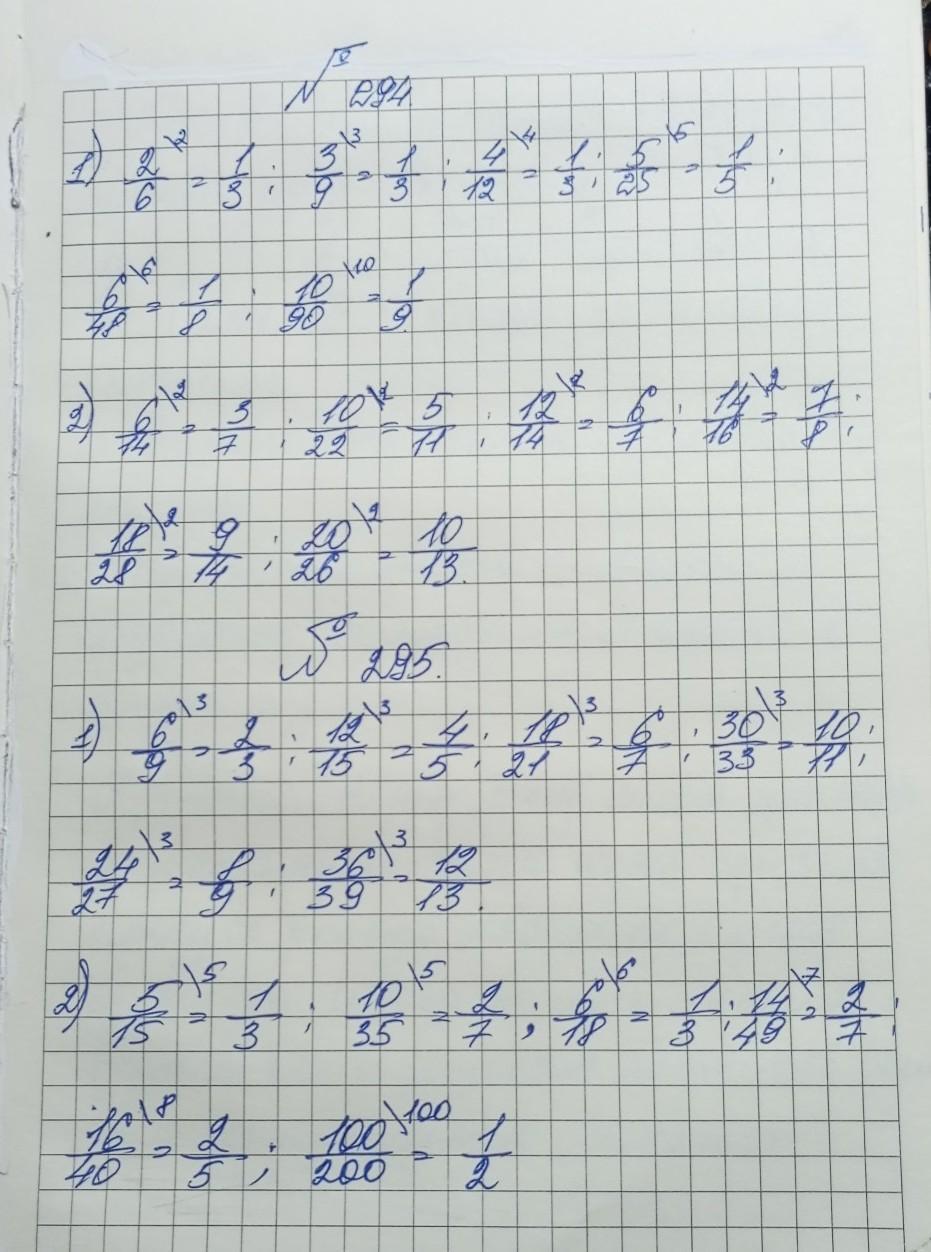 № 294
1) 2/6 \2 = 1/3 ; 3/9 \3 = 1/3 ; 4/12 \4 = 1/3 ; 5/25 \5 = 1/5 ;
6/48 \6 = 1/8 ; 10/90 \10 = 1/9.
2) 6/14 \2 = 3/7 ; 10/22 \2 = 5/11 ; 12/14 \2 = 6/7 ; 14/16 \2 = 7/8 ;
18/28 \2 = 9/14 ; 20/26 \2 = 10/13.
№ 295.
1) 6/9 \3 = 2/3 ; 12/15 \3 = 4/5 ; 18/21 \3 = 6/7 ; 30/33 \3 = 10/11 ;
24/27 \3 = 8/9 ; 36/39 \3 = 12/13.
2) 5/15 \5 = 1/3 ; 10/35 \5 = 2/7 ; 6/18 \6 = 1/3 ; 14/49 \7 = 2/7 ;
16/40 \8 = 2/5 ; 100/200 \100 = 1/2